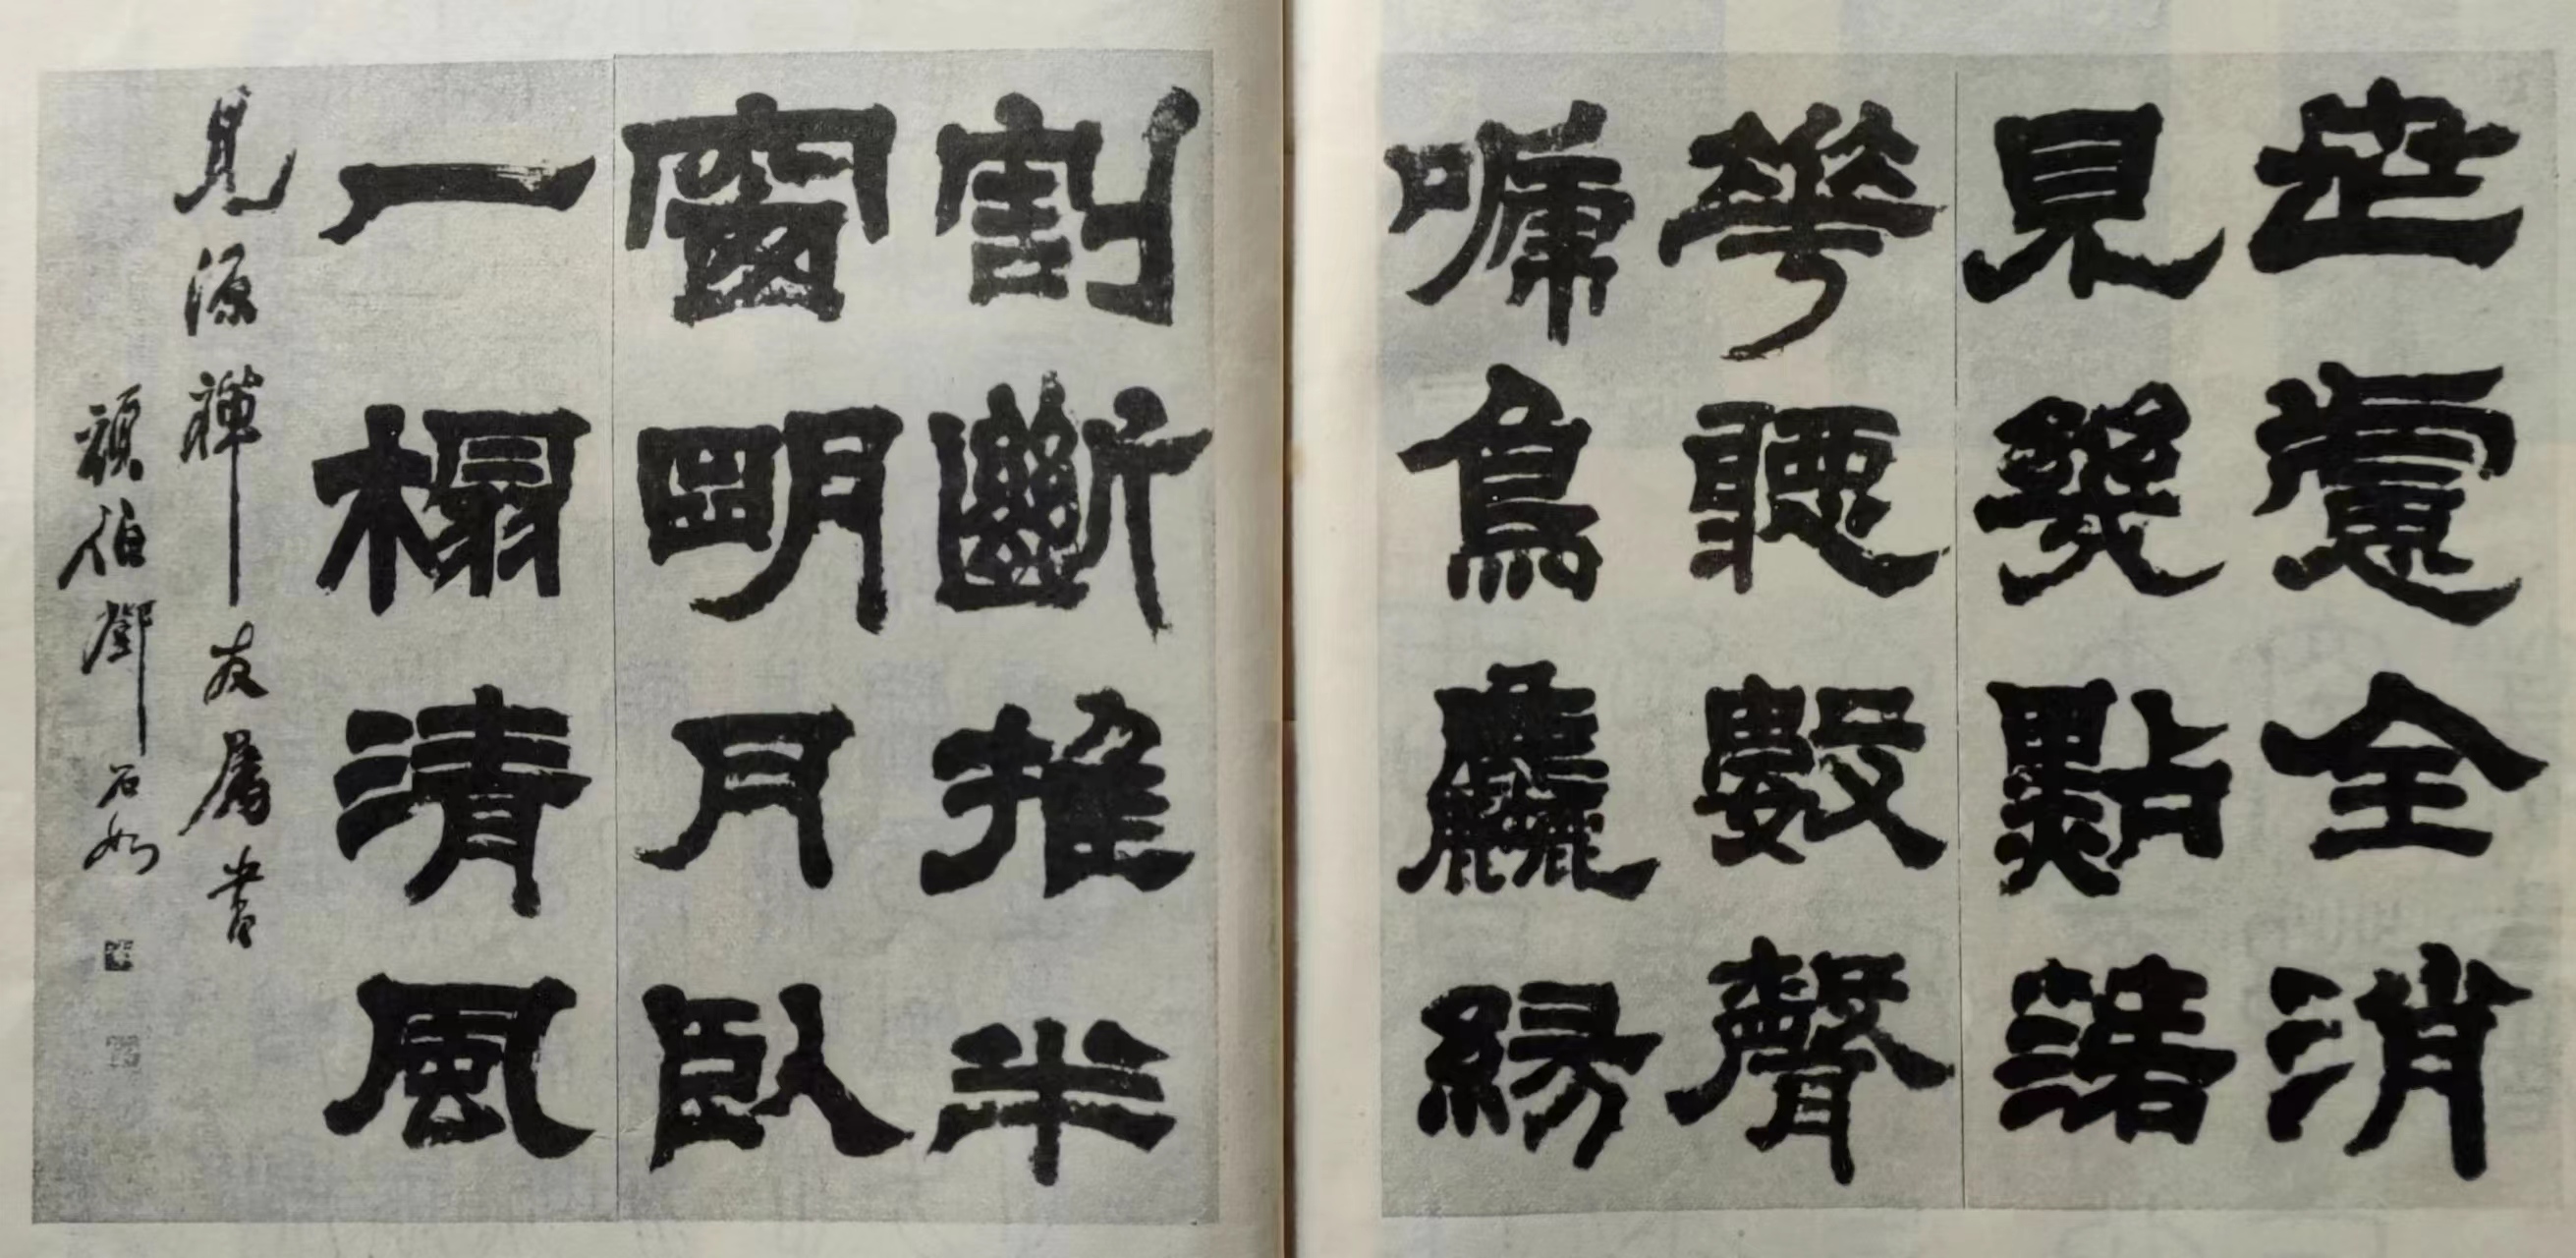 世慮全消
見幾點落
華聽數聲
啼鳥塵緣
割斷推半
窗明月臥
一榻清風
見源禪友屬書
頑伯鄧石如